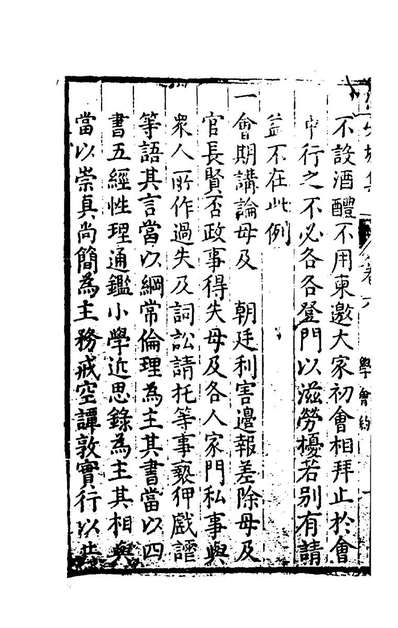 不設酒醴不用柬邀大家初會相拜止於會
中行之不必各各登門以滋勞擾若別有請
益不在此例
一會期講論毋及　朝廷利害邊報差除毋及
官長賢否政事得失毋及各人家門私事與
衆人所作過失及詞訟請托等事褻狎戲謔
等語其言當以綱常倫理為主其書當以四
書五經性理通鑑小學近思錄為主其相與
當以崇真尚簡為主務戒空譚敦實行以共
學會約